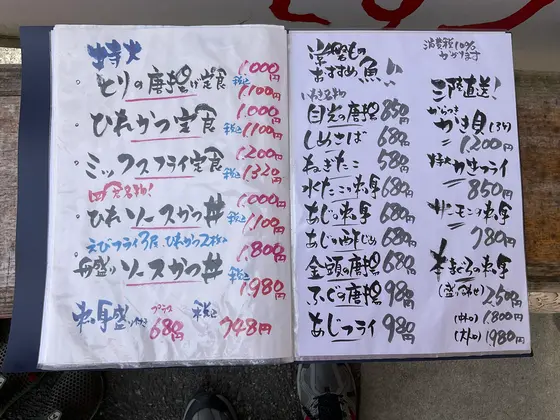 特大
とりの唐揚げ定食 1,000円
税込 1,100円
ひれかつ定食 1,000円
税込 1,100円
ミックスフライ定食 1,200円
税込 1,320円
名物!
ひれソースかつ丼 1,000円
税込 1,100円
えびフライ3尾、ひれかつ2枚
舟盛りソースかつ丼 1,800円
税込 1,980円
刺身盛り付き プラス 680円 税込 748円
常磐もの
おすすめ魚!!
いわき名物
目光の唐揚 850円
しめさば 680円
ねぎたこ 580円
水たこの刺身 680円
あじの刺身 680円
あじの酢じめ 680円
金頭の唐揚 680円
ふぐの唐揚 980円
あじフライ 980円
消費税10%
かかります
三陸直送!
からつき
かき貝(3ケ)
1,200円
特大かきフライ
850円
サーモン刺身
780円
本まぐろの刺身
(盛り合せ) 2,500円
(中トロ) 1,800円
(大トロ) 1,980円